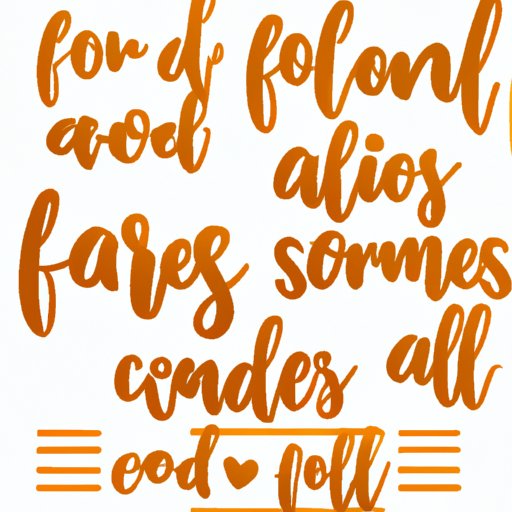 for d folonl
aood
alios
fares
sormes
all
condes
eod ♥ foll